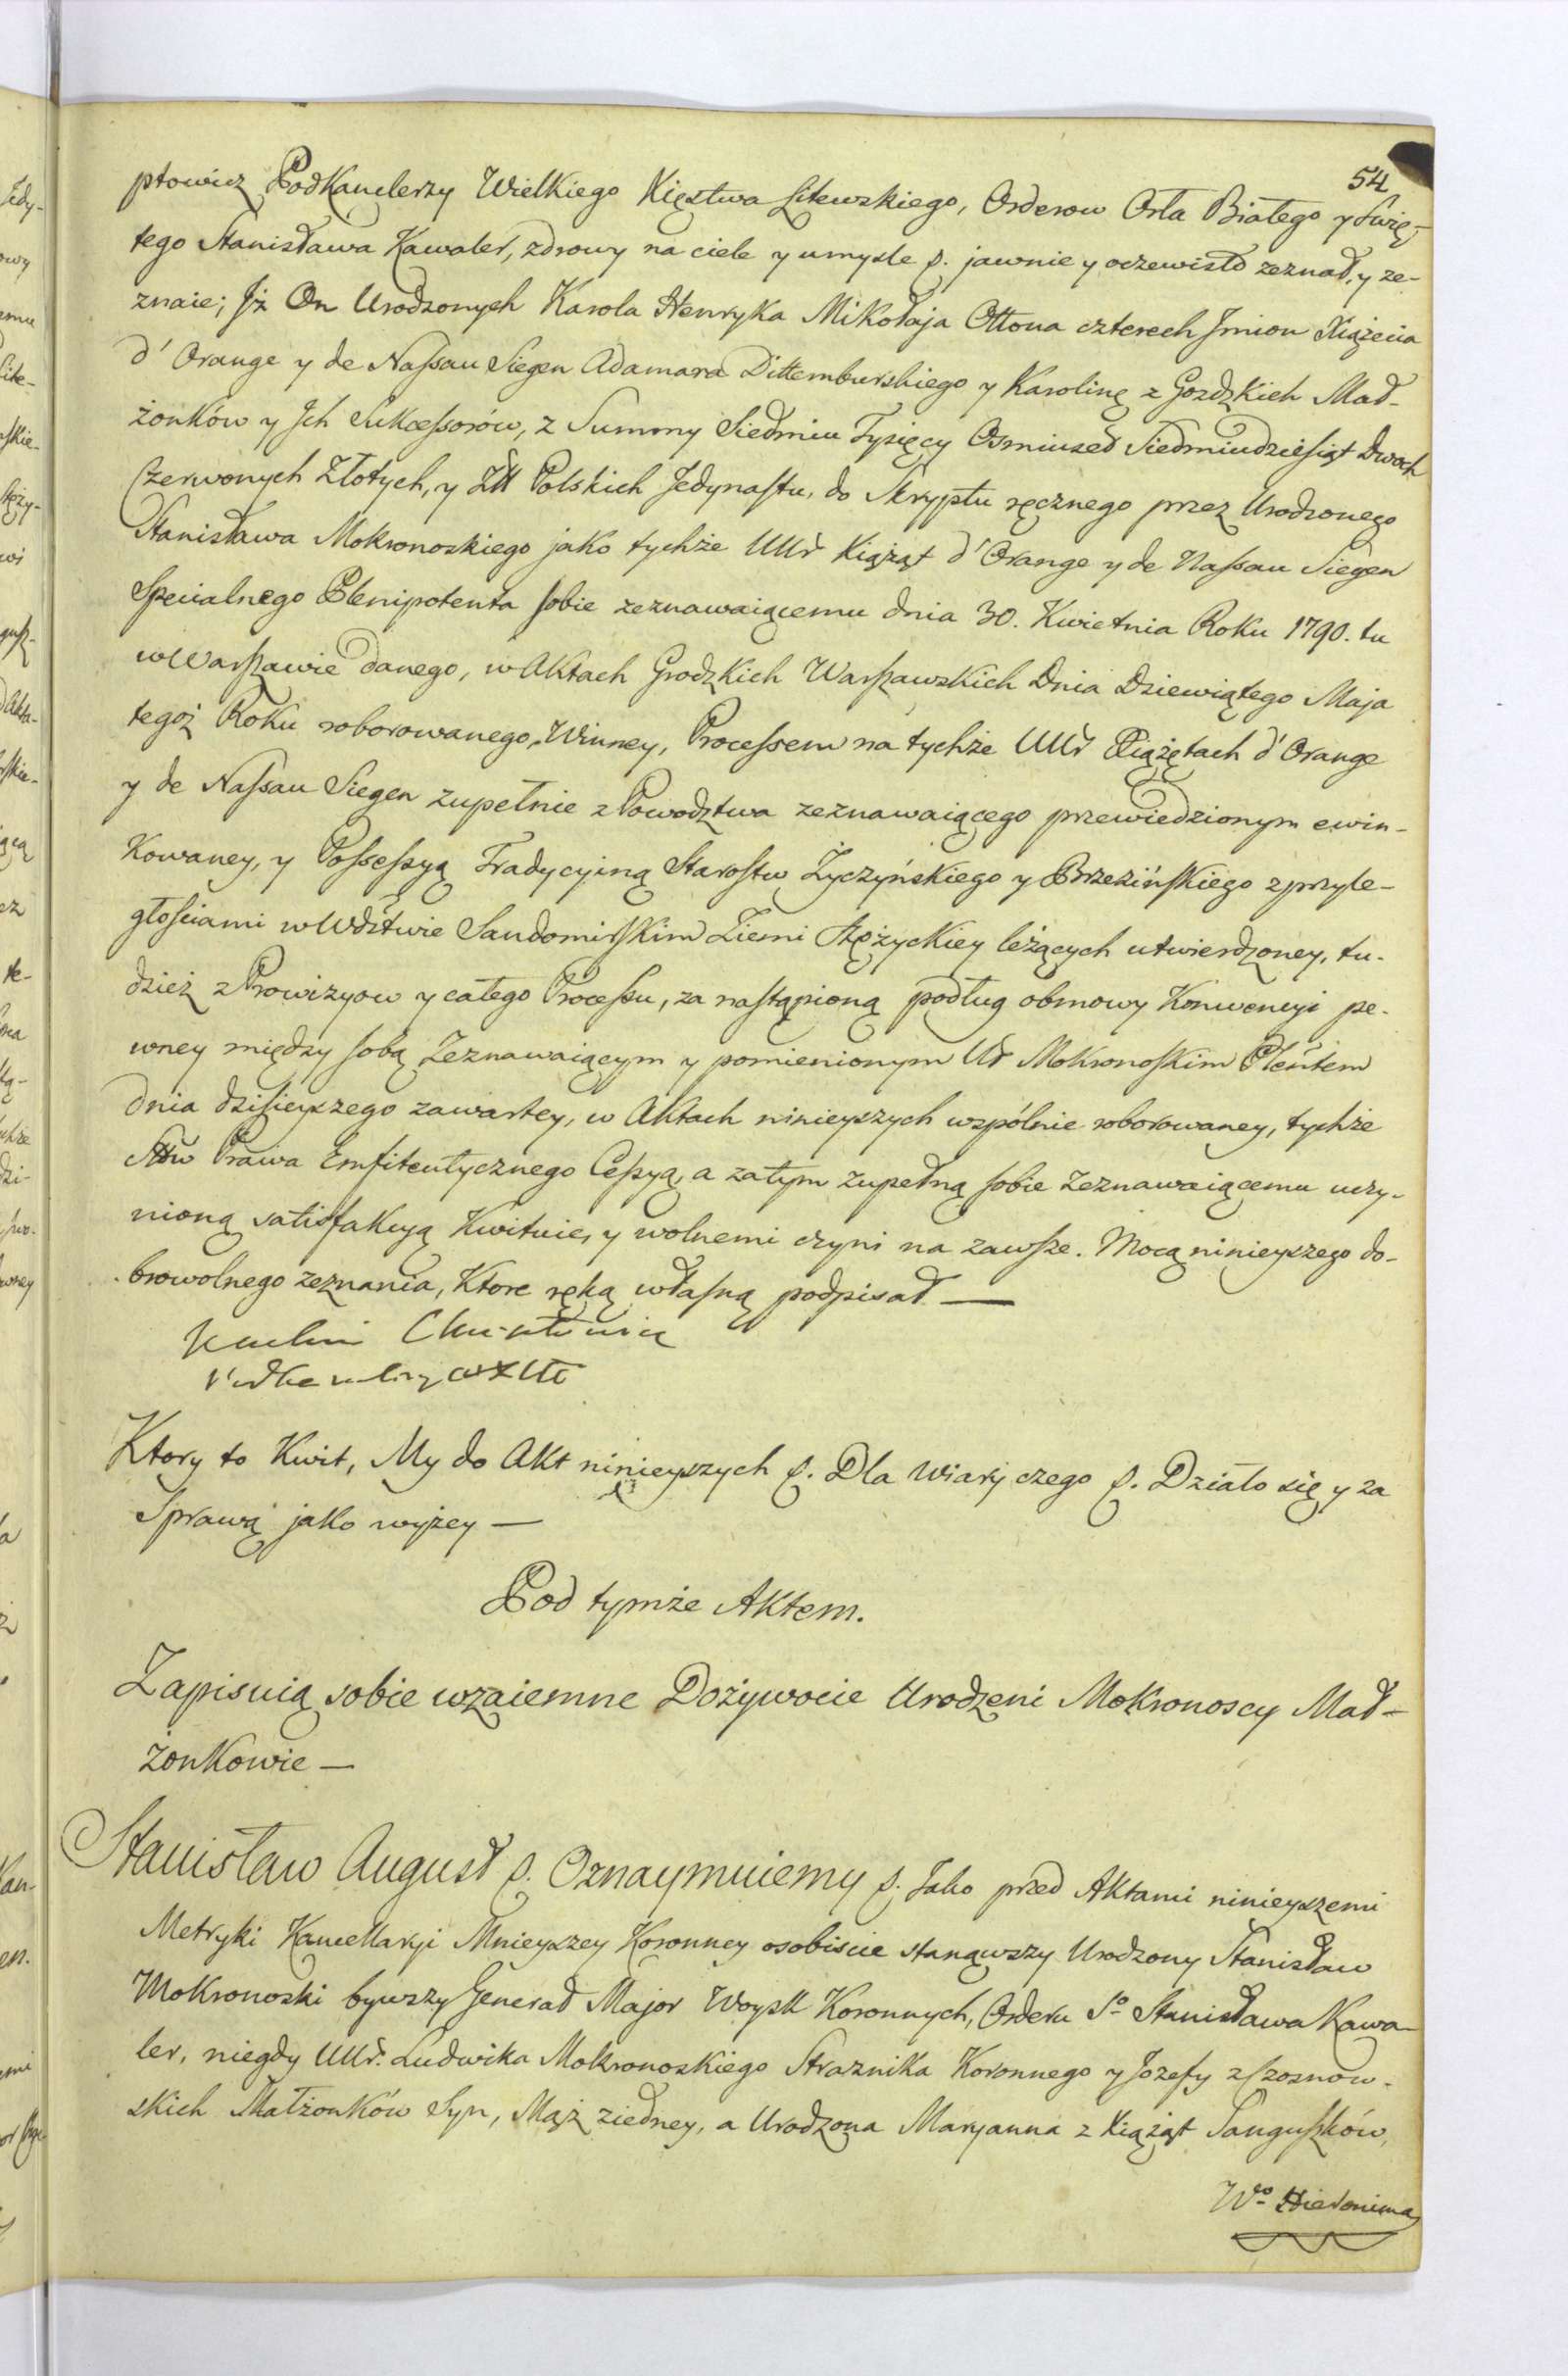 54
ptowicz PodKanclerzy Wielkiego Xięstwa Litewskiego, Orderow Orła Białego y Swię-
tego Stanisława Kawaler, zdrowy na ciele y umysle p. jawnie y oczewisto zeznał, y ze-
znaie; Jż On Urodzonych Karola Henryka Mikołaja Ottona czterech Jmion Xiążecia
d'Orange y de Nassau Siegen Adamara Dittemburskiego y Karolinę z Gozdzkich Mał-
żonków y Jch Sukcessorów, z Summy Siedmiu Tysięcy Osmiuset Siedmiudziesiąt Dwoch
Czerwonych Złotych, y Złł Polskich Jedynastu, do Skryptu ręcznego przez Urodzonego
Stanisława Mokronoskiego jako tychże UUr Xiążąt d'Orange y de Nassau Siegen
Specialnego Plenipotenta sobie zeznawaiącemu dnia 30. Kwietnia Roku 1790. tu
w Warszawie danego, w Aktach Grodzkich Warszawskich Dnia Dziewiątego Maja
tegoż Roku roborowanego, Winney, Processem na tychże UUr Xiążętach d'Orange
y de Nassau Siegen zupełnie z Powodztwa zeznawaiącego przewiedzionym ewin-
kowaney, y Possessyą Tradycyiną Starostw Życzyńskiego y Brzezińskiego z przyle-
głościami w Wdztwie Sandomirskim Ziemi Stężyckiey leżących utwierdzoney, tu-
dzież z Prowizyow y całego Processu, za nastąpioną podług obmowy Konwencyi pe-
wney między sobą Zeznawaiącym y pomienionym Ur Mokronoskim Plentem
dnia dzisieyszego zawartey, w Aktach ninieyszych wspólnie roborowaney, tychże
Sttw Prawa Emfiteutycznego Cessyą, a zatym zupełną sobie Zeznawaiącemu uczy-
nioną satisfakcyą Kwituie, y wolnemi czyni na zawsze. Mocą ninieyszego do-
browolnego zeznania, Ktore ręką własną podpisał —
Ktory to Kwit, My do Akt ninieyszych p. Dla Wiary czego p. Działo się y za
Sprawą jako wyżey —
Pod tymże Aktem.
Zapisuią sobie wzaiemne Dożywocie Urodzeni Mokronoscy Mał-
żonkowie —
Stanisław August p. Oznaymuiemy p. Jako przed Aktami ninieyszemi
Metryki Kancellaryi Mnieyszey Koronney osobiscie stanąwszy Urodzony Stanisław
Mokronoski bywszy Generał Major Woysk Koronnych, Orderu So Stanisława Kawa-
ler, niegdy UUr. Ludwika Mokronoskiego Straznika Koronnego y Jozefy z Czosnow-
skich Małżonków Syn, Mąż ziedney, a Urodzona Maryanna z Xiążąt Sanguszków,
Wo Hieronima